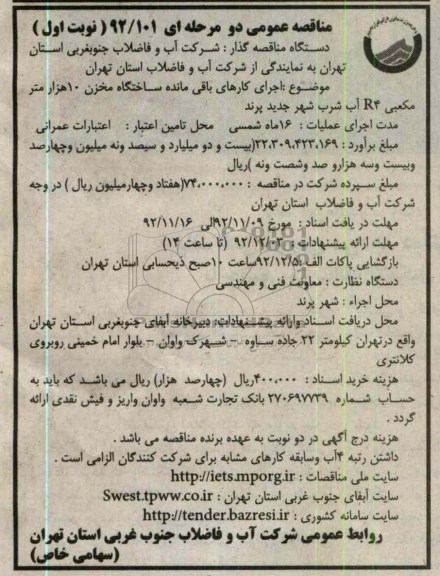 مناقصه عمومی دو مرحله ای ۹۲/۱۰۱ ( نوبت اول )
دستگاه مناقصه گذار : شرکت آب و فاضلاب جنوبغربی استان
تهران به نمایندگی از شرکت آب و فاضلاب استان تهران
موضوع :اجرای کارهای باقی مانده ساختگاه مخزن ۱۰هزار متر
مکعبی R۴ آب شرب شهر جدید پرند
مدت اجرای عملیات : ۱۶ماه شمسی محل تامین اعتبار : اعتبارات عمرانی
مبلغ برآورد : ۲۲،۳۰۹،۴۲۳،۱۶۹(بیست و دو میلیارد و سیصد ونه میلیون وچهارصد
وبیست وسه هزارو صد وشصت ونه )ریال
مبلغ سپرده شرکت در مناقصه : ۷۴،۰۰۰،۰۰۰(هفتاد وچهارمیلیون ریال ) در وجه
شرکت آب و فاضلاب استان تهران
مهلت در یافت اسناد : مورخ ۹۲/۱۱/۰۹الی ۹۲/۱۱/۱۶
مهلت ارائه پیشنهادات : ۹۲/۱۲/۰۳ (تا ساعت ۱۴)
بازگشایی پاکات الف :۹۲/۱۲/۵ساعت ۱۰صبح ذیحسابی استان تهران
دستگاه نظارت : معاونت فنی و مهندسی
محل اجراء : شهر پرند
محل دریافت اسناد وارائه پیشنهادات: دبیرخانه آبفای جنوبغربی استان تهران
واقع درتهران کیلومتر ۲۲ جاده ساوه – شهرک واوان – بلوار امام خمینی روبروی
کلانتری
هزینه خرید اسناد : ۴۰۰،۰۰۰ریال (چهارصد هزار) ریال می باشد که باید به
حساب شماره ۲۷۰۶۹۷۷۳۹ بانک تجارت شعبه واوان واریز و فیش نقدی ارائه
گردد .
هزینه درج آگهی در دو نوبت به عهده برنده مناقصه می باشد .
داشتن رتبه ۴آب وسابقه کارهای مشابه برای شرکت کنندگان الزامی است .
سایت ملی مناقصات : http://iets.mporg.ir
سایت آبفای جنوب غربی استان تهران : Swest.tpww.co.ir
سایت سامانه کشوری : http://tender.bazresi.ir
روابط عمومی شرکت آب و فاضلاب جنوب غربی استان تهران
(سهامی خاص)